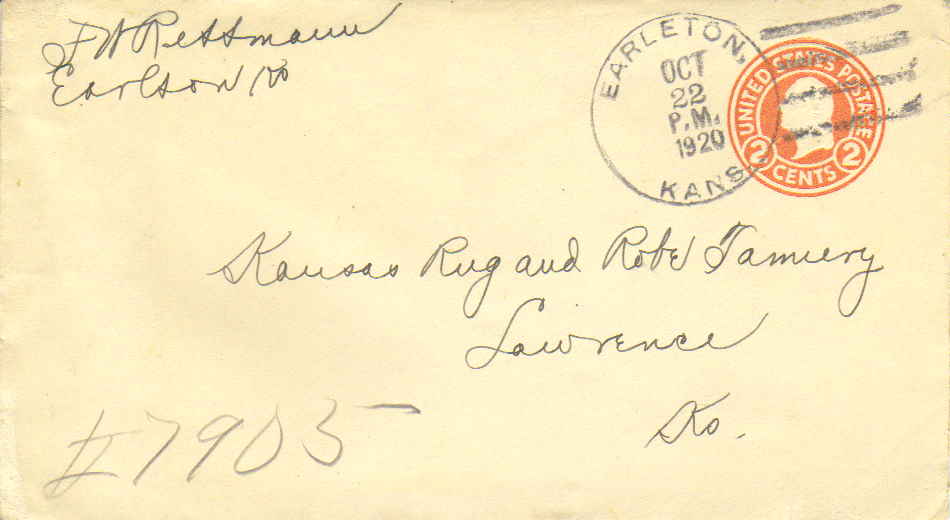 F W Rettmann
Earlson Ks
EARLETON,
OCT
22
P.M.
1920
KANS.
UNITED STATES POSTAGE
2 CENTS 2
Kansas Rug and Robe Tannery
Lawrence
Ks.
#7905